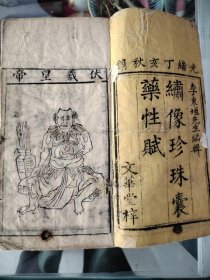 光緒丁亥秋鐫
李東垣先生編輯
繡像珍珠囊
藥性賦
文華堂梓
伏羲皇帝